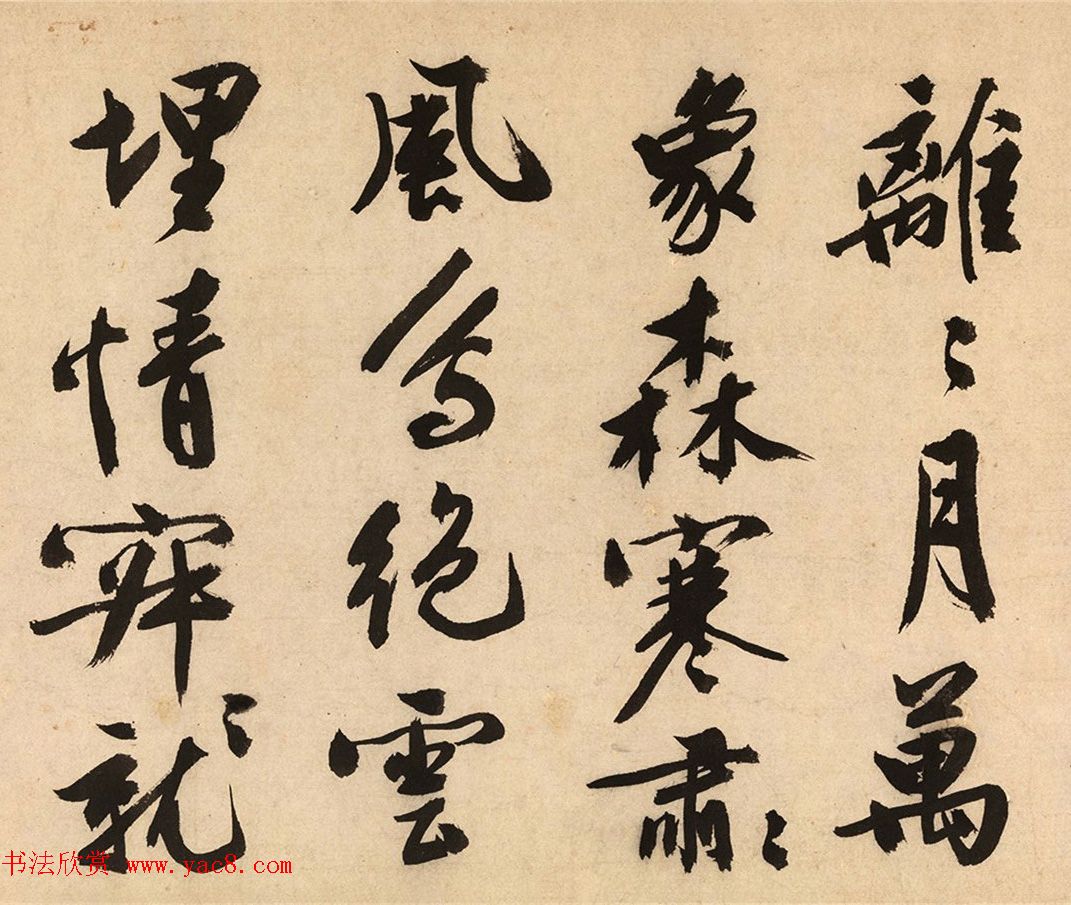 離〻月萬
象森寒肅〻
風為絕雲
埋情〻就
书法欣赏 www.yac8.com